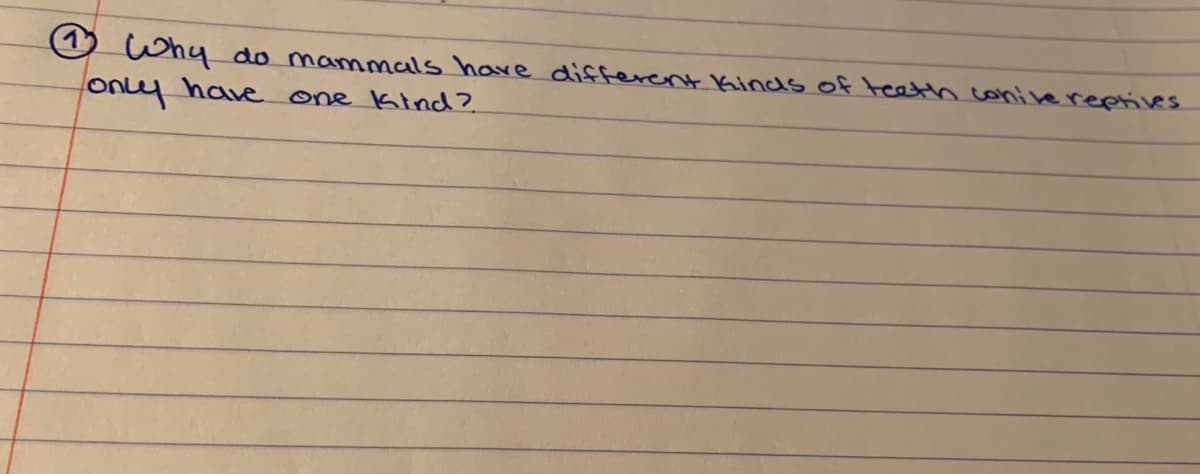 ① Why do mammals have different kinds of teeth while reptiles
only have one kind?